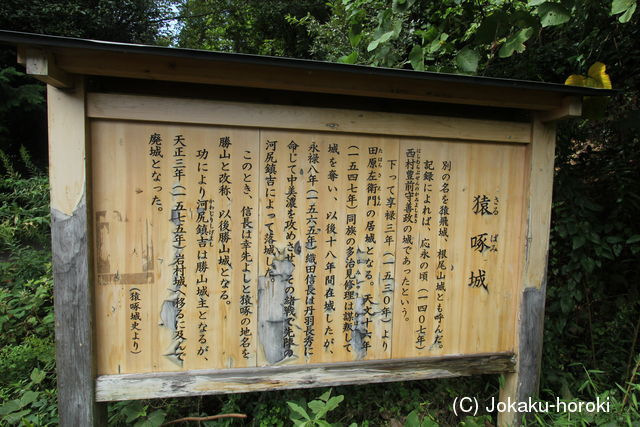 猿啄城
さる ばみ
別の名を猿飛城、根尾山城とも呼んだ。
記録によれば、応永の頃（一四〇七年）
西村豊前守善政の城であったという。
下って享禄三年（一五三〇年）より
田原左衛門の居城となる。天文十六年
（一五四七年）同族の多治見修理は謀叛して
城を奪い、以後十八年間在城したが、
永禄八年（一五六五年）織田信長は丹羽長秀に
命じて中美濃を攻めさせ、その緒戦で先陣の
河尻鎮吉によって落城した。
このとき、信長は幸先よしと猿啄の地名を
勝山と改称、以後勝山城となる。
功により河尻鎮吉は勝山城主となるが、
天正三年（一五七五年）岩村城へ移るに及んで
廃城となった。
（猿啄城史より）
(C) Jokaku-horoki